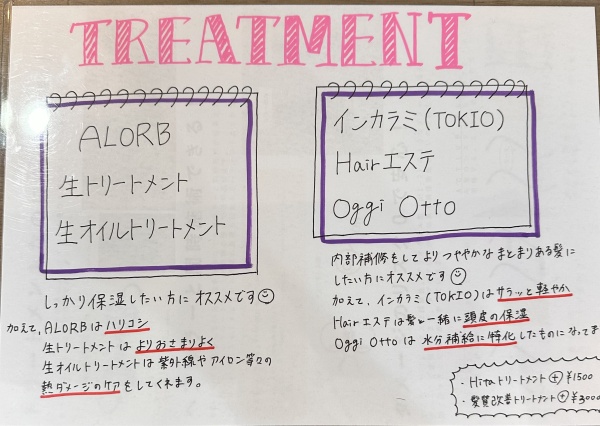 TREATMENT
ALORB
生トリートメント
生オイルトリートメント
しっかり保湿したい方にオススメです
加えて、ALORBはハリコシ
生トリートメントはよりおさまりよく
生オイルトリートメントは紫外線やアイロン等々の
熱ダメージのケアをしてくれます。
インカラミ(TOKIO)
Hairエステ
Oggi Otto
内部補修をしてよりつややかなまとまりある髪に
したい方にオススメです
加えて、インカラミ(TOKIO)はサラッと軽やか
Hairエステは髪と一緒に頭皮の保湿
Oggi Ottoは水分補給に特化したものになってま
・Hitaトリートメント+¥1500
・髪質改善トリートメント+¥3000